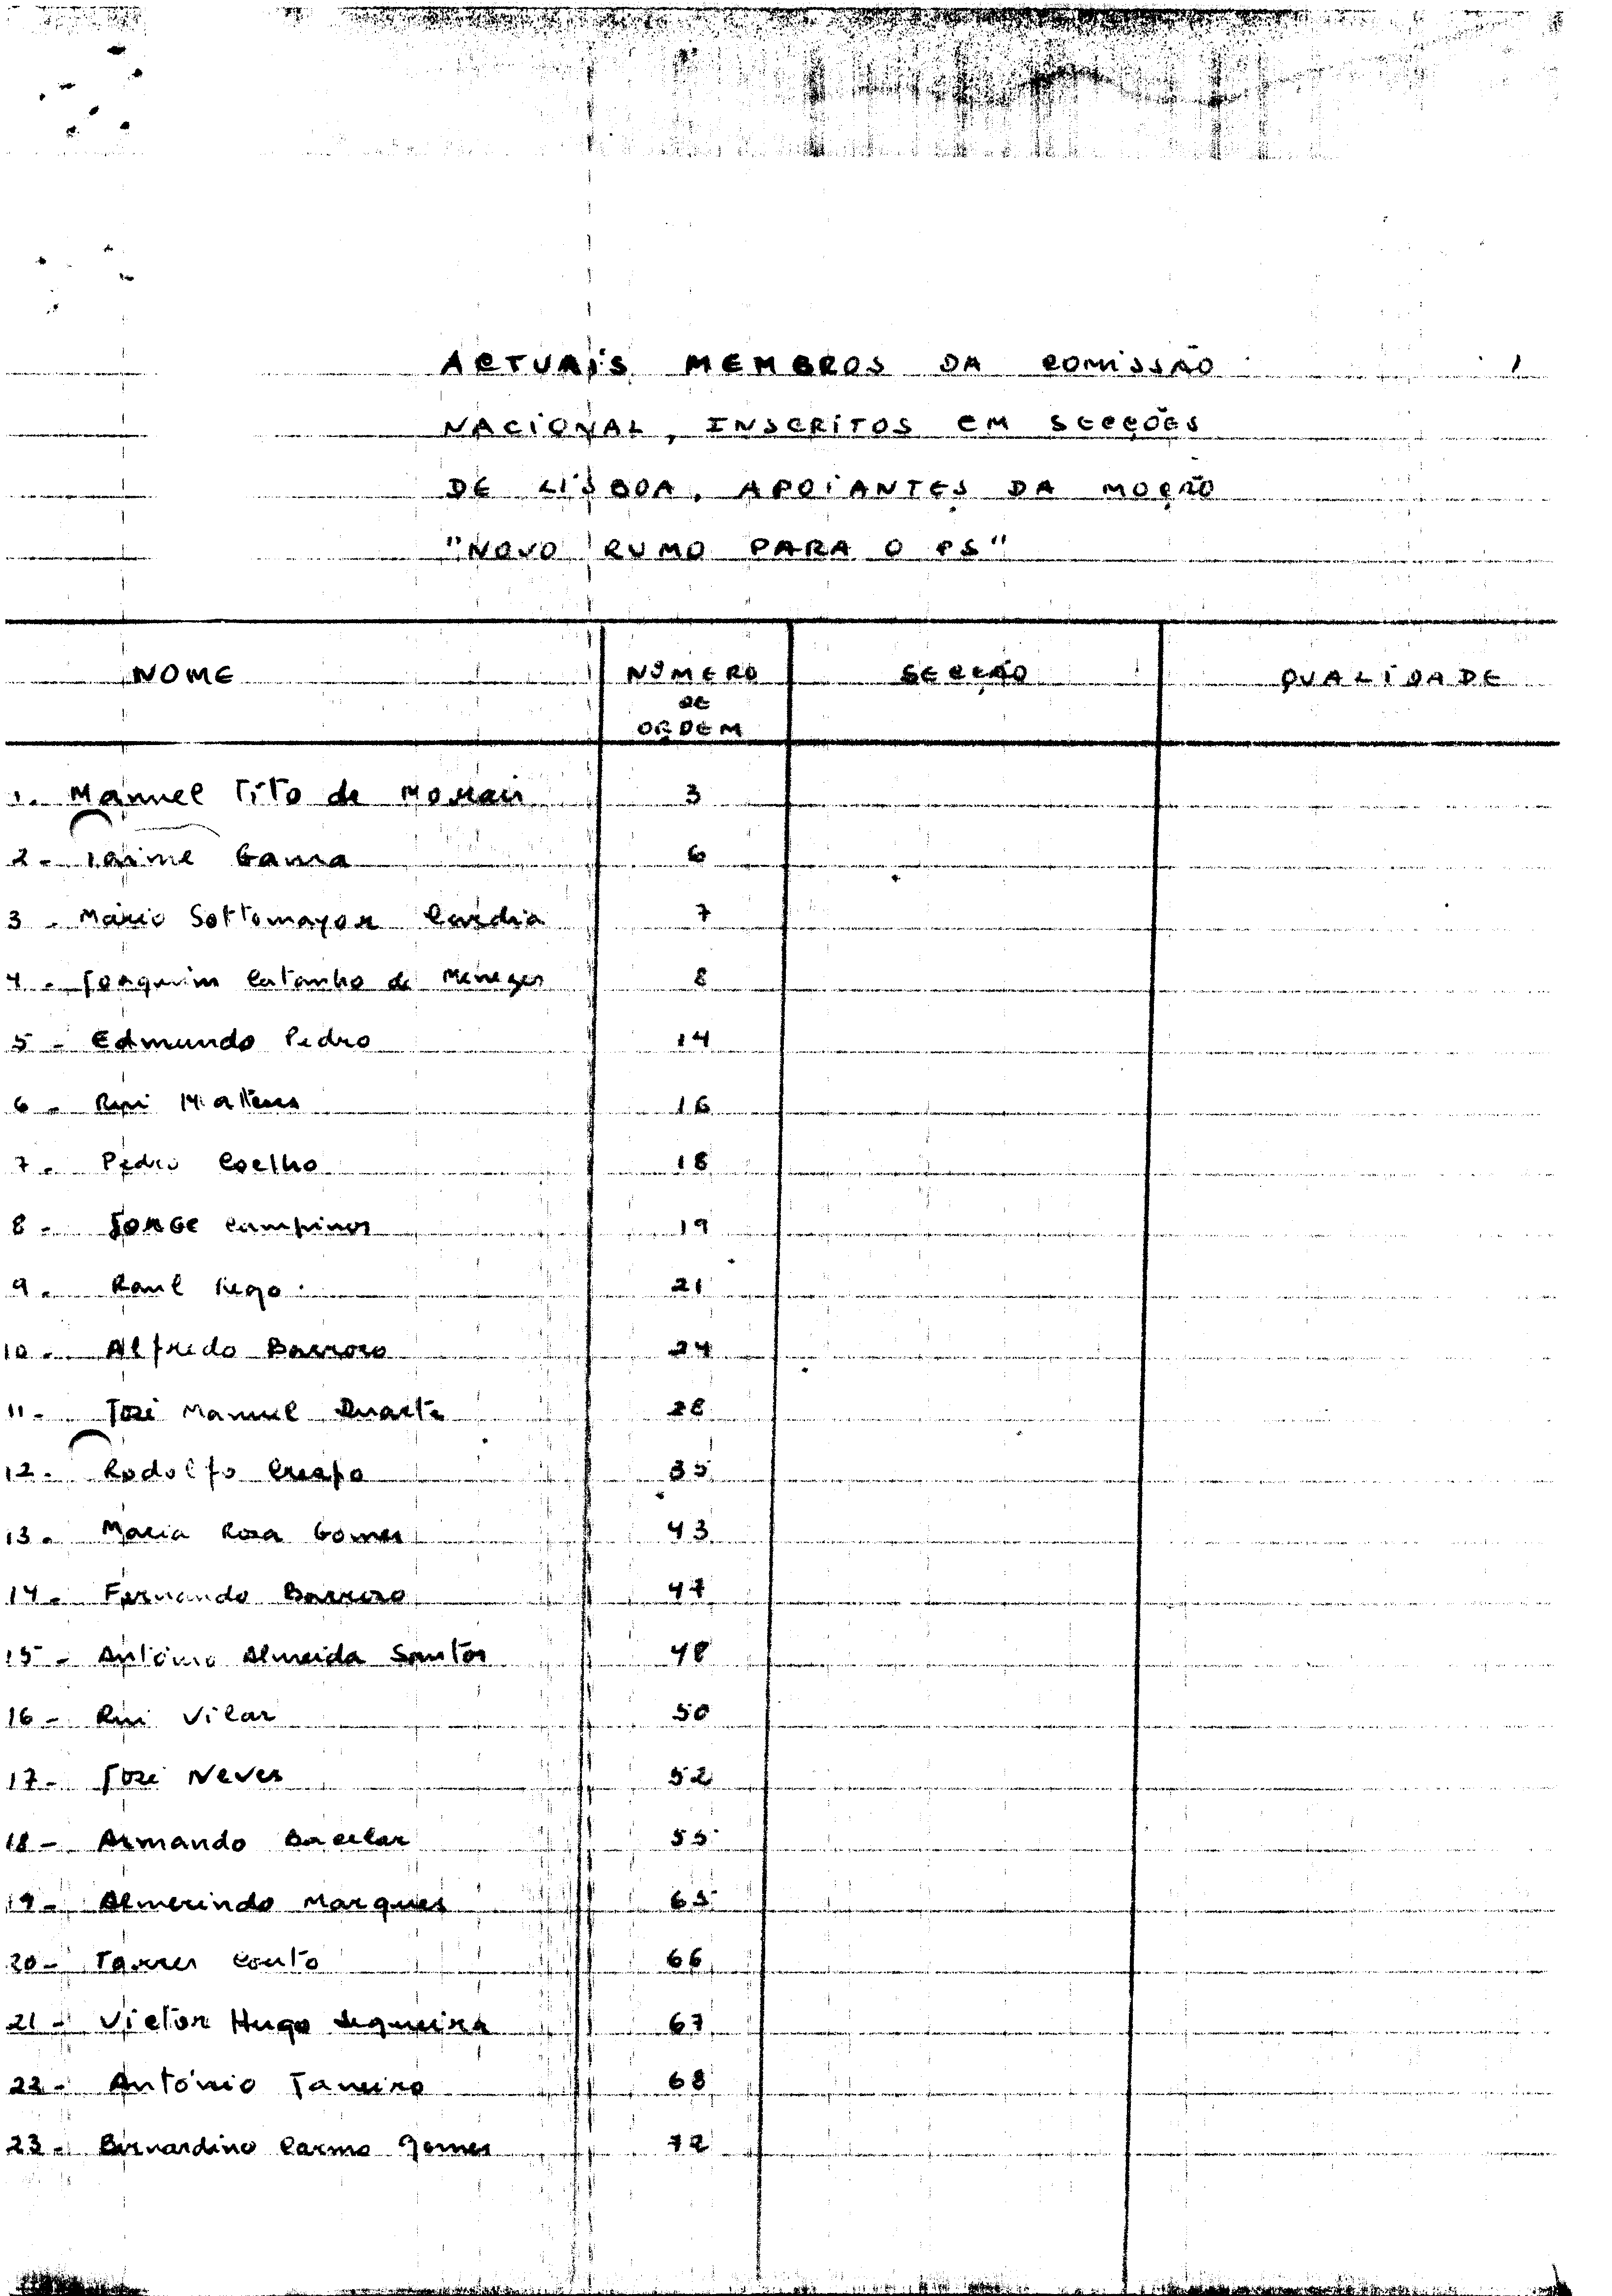 ACTUAIS MEMBROS DA COMISSÃO 1
NACIONAL, INSCRITOS EM SECÇÕES
DE LISBOA, APOIANTES DA MOÇÃO
"NOVO RUMO PARA O PS"
NOME NÚMERO SECÇÃO QUALIDADE
DE
ORDEM
1. Manuel Tito de Morais 3
2 - Jaime Gama 6
3 - Mário Sottomayor Cardia 7
4 - Joaquim Catanho de Menezes 8
5 - Edmundo Pedro 14
6 - Rui Mateus 16
7 - Pedro Coelho 18
8 - JORGE Campinos 19
9 - Raul Rego 21
10 - Alfredo Barroso 24
11 - José Manuel Duarte 28
12 - Rodolfo Crespo 35
13 - Maria Rosa Gomes 43
14 - Fernando Barroso 47
15 - António Almeida Santos 48
16 - Rui Vilar 50
17 - José Neves 52
18 - Armando Bacelar 55
19 - Almerindo Marques 65
20 - Torres Couto 66
21 - Victor Hugo Sequeira 67
22 - António Janeiro 68
23 - Bernardino Carmo Gomes 72